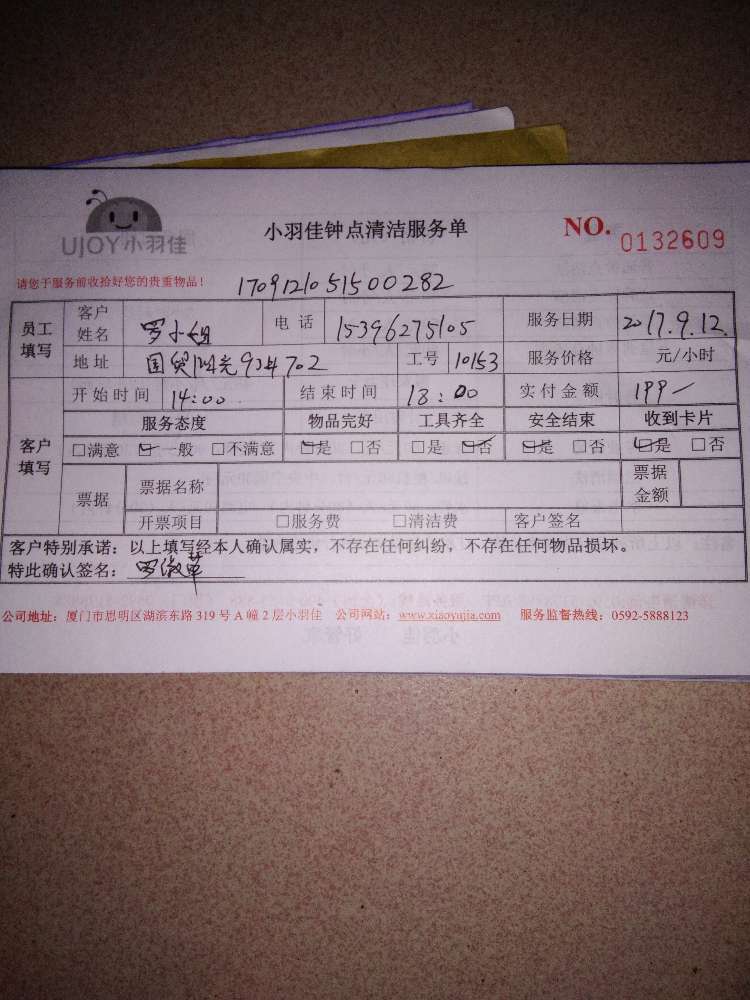 UJOY小羽佳
小羽佳钟点清洁服务单
NO. 0132609
请您于服务前收拾好您的贵重物品！
1709121051500282
员工填写
客户姓名 罗小姐 电话 15396275105 服务日期 2017.9.12.
地址 国贸阳光 702 工号 10153 服务价格 元/小时
客户填写
开始时间 14:00 结束时间 18:00 实付金额 199
服务态度 物品完好 工具齐全 安全结束 收到卡片
□满意 □一般 □不满意 □是 □否 □是 □否 □是 □否 □是 □否
票据 票据名称 票据金额
开票项目 □服务费 □清洁费 客户签名
客户特别承诺：以上填写经本人确认属实，不存在任何纠纷，不存在任何物品损坏。
特此确认签名：罗
公司地址：厦门市思明区湖滨东路 319 号 A 幢 2 层小羽佳 公司网站：www.xiaoyujia.com 服务监督热线：0592-5888123